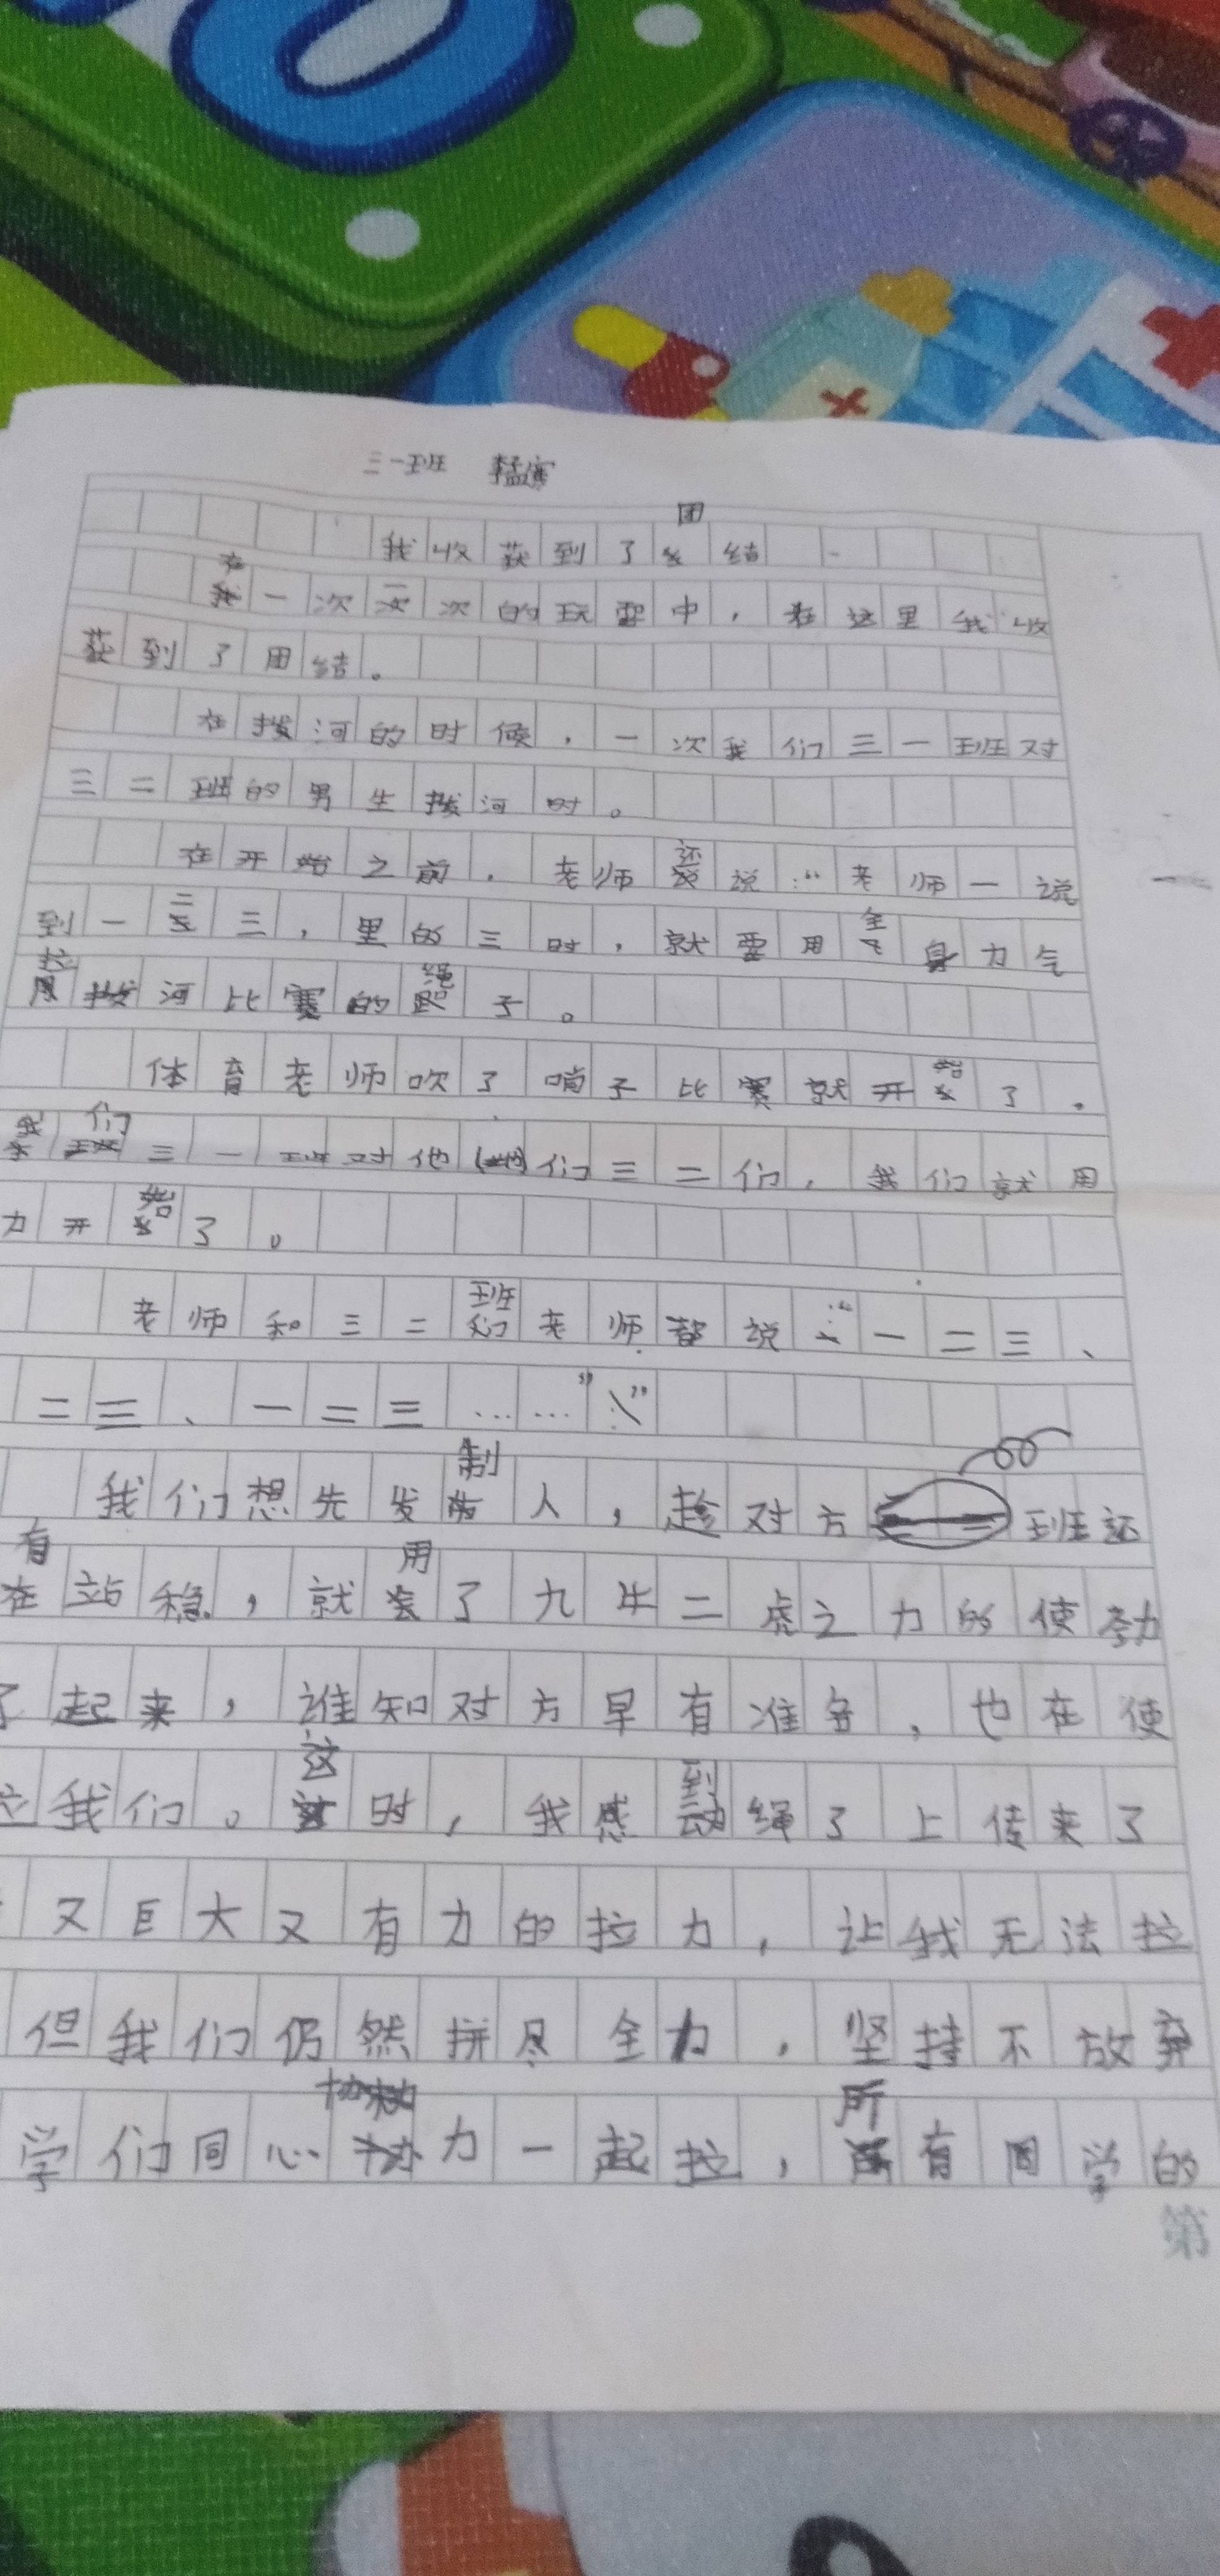 三一班
我收获到了团结
在一次一次的玩耍中，在这里我收
获到了团结。
在拨河的时候，一次我们三一班对
三二班的男生拨河时。
在开始之前，老师还说：“老师一说
到一二三，里的三时，就要用全身力气
拉拨河比赛的绳子。
体育老师吹了哨子比赛就开始了。
我们三一班对他们三二们，我们就用
力开始了。
老师和三二班老师都说：“一二三、
二三、一二三……”
我们想先发制人，趁对方班还
有站稳，就用了九牛二虎之力的使劲
了起来，谁知对方早有准备，也在使
拉我们。这时，我感到绳了上传来了
又巨大又有力的拉力，让我无法拉
但我们仍然拼尽全力，坚持不放弃
学们同心协力一起拉，所有同学的
第